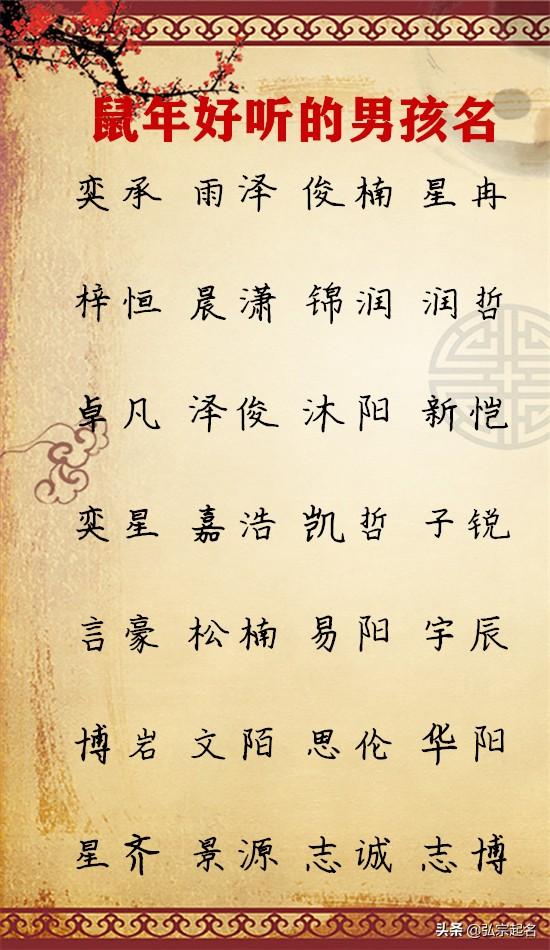 鼠年好听的男孩名
奕承 雨泽 俊楠 星冉
梓恒 晨潇 锦润 润哲
卓凡 泽俊 沐阳 新恺
奕星 嘉浩 凯哲 子锐
言豪 松楠 易阳 宇辰
博岩 文陌 思伦 华阳
星齐 景源 志诚 志博
头条 @弘宗起名